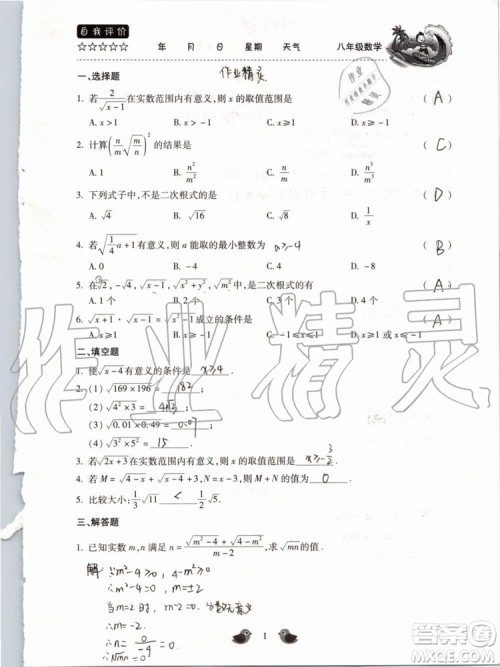 自我评价
☆☆☆☆☆ 年 月 日 星期 天气 八年级数学
一、选择题 作业精灵
1. 若2/√(x-1)在实数范围内有意义,则x的取值范围是 ( A )
A. x>1 B. x>-1 C. x≥1 D. x≥-1
2. 计算(n/m √(m/n))²的结果是 ( C )
A. 1 B. n²/m² C. n/m D. n³/m³
3. 下列式子中,不是二次根式的是 ( D )
A. √4 B. √16 C. √8 D. 1/x
4. 若√(1/4 a+1)有意义,则a能取的最小整数为 a≥-4 ( B )
A. 0 B. -4 C. 4 D. -8
5. 在√2, -√4, √(x-1), √(x²+y²), √x 中,是二次根式的有 ( A )
A. 1个 B. 2个 C. 3个 D. 4个
6. √(x+1)·√(x-1)=√(x²-1)成立的条件是 ( A )
A. x≥1 B. x≥-1 C. -1≤x≤1 D. x≥1或x≤-1
二、填空题
1. 使√(x-4)有意义的条件是 x≥4 .
2. (1) √(169×196) = 182 ;
(2) √(4²×3) = 4√3 ;
(3) √(0.01×0.49) = 0.07
(4) √(3²×5²) = 15 .
3. 若√(2x+3)在实数范围内有意义,则x的取值范围是 x≥-3/2 .
4. 若M=√(4-x)+√(x-4),N=√x,则M×N的值为 0 .
5. 比较大小:1/3 √11 < 1/5 √51
三、解答题
1. 已知实数m,n满足n=(√(m²-4)+√(4-m²))/(m-2),求√(mn)的值.
解:∵m²-4≥0, 4-m²≥0
∴m²-4=0, ∴m=±2
当m=2时, m-2=0
∴m=-2.
∴n=0/-4=0
∴√mn=0
1
作业精灵